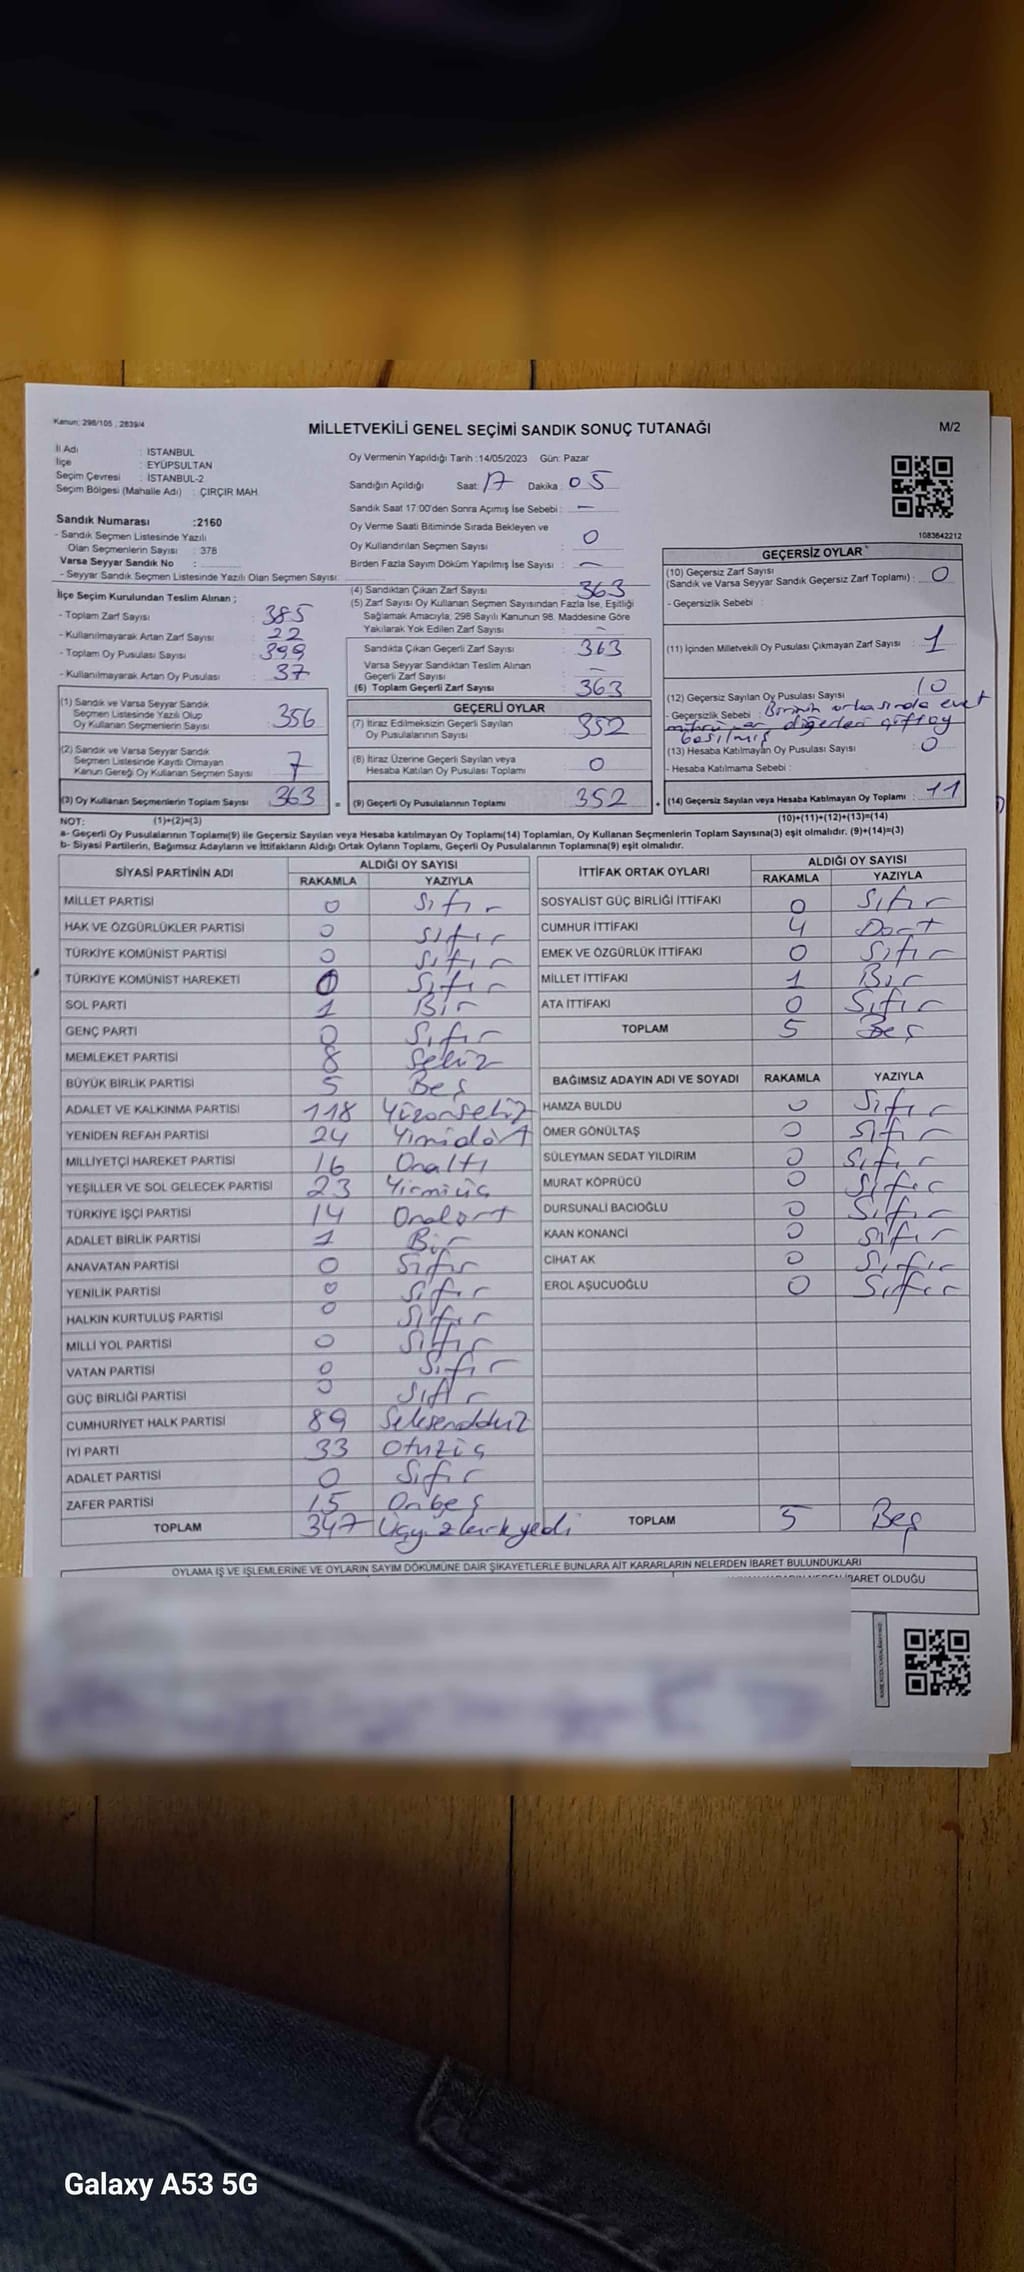 Kanun: 298/105 , 2839/4
MİLLETVEKİLİ GENEL SEÇİMİ SANDIK SONUÇ TUTANAĞI
M/2
İl Adı : İSTANBUL
İlçe : EYÜPSULTAN
Seçim Çevresi : İSTANBUL-2
Seçim Bölgesi (Mahalle Adı) : ÇIRÇIR MAH.
Sandık Numarası :2160
- Sandık Seçmen Listesinde Yazılı
Olan Seçmenlerin Sayısı : 378
Varsa Seyyar Sandık No :
- Seyyar Sandık Seçmen Listesinde Yazılı Olan Seçmen Sayısı :
Oy Vermenin Yapıldığı Tarih :14/05/2023 Gün: Pazar
Sandığın Açıldığı Saat: 17 Dakika: 05
Sandık Saat 17:00'den Sonra Açımış İse Sebebi : —
Oy Verme Saati Bitiminde Sırada Bekleyen ve
Oy Kullandırılan Seçmen Sayısı : 0
Birden Fazla Sayım Döküm Yapılmış İse Sayısı : —
1083642212
İlçe Seçim Kurulundan Teslim Alınan ;
- Toplam Zarf Sayısı : 385
- Kullanılmayarak Artan Zarf Sayısı : 22
- Toplam Oy Pusulası Sayısı : 399
- Kullanılmayarak Artan Oy Pusulası : 37
(1) Sandık ve Varsa Seyyar Sandık
Seçmen Listesinde Yazılı Olup
Oy Kullanan Seçmenlerin Sayısı : 356
(2) Sandık ve Varsa Seyyar Sandık
Seçmen Listesinde Kayıtlı Olmayan
Kanun Gereği Oy Kullanan Seçmen Sayısı : 7
(3) Oy Kullanan Seçmenlerin Toplam Sayısı : 363 =
(4) Sandıktan Çıkan Zarf Sayısı : 363
(5) Zarf Sayısı Oy Kullanan Seçmen Sayısından Fazla İse, Eşitliği
Sağlamak Amacıyla, 298 Sayılı Kanunun 98. Maddesine Göre
Yakılarak Yok Edilen Zarf Sayısı : —
Sandıkta Çıkan Geçerli Zarf Sayısı : 363
Varsa Seyyar Sandıktan Teslim Alınan
Geçerli Zarf Sayısı : —
(6) Toplam Geçerli Zarf Sayısı : 363
GEÇERLİ OYLAR
(7) İtiraz Edilmeksizin Geçerli Sayılan
Oy Pusulalarının Sayısı : 352
(8) İtiraz Üzerine Geçerli Sayılan veya
Hesaba Katılan Oy Pusulası Toplamı : 0
(9) Geçerli Oy Pusulalarının Toplamı : 352
GEÇERSİZ OYLAR
(10) Geçersiz Zarf Sayısı
(Sandık ve Varsa Seyyar Sandık Geçersiz Zarf Toplamı) : 0
- Geçersizlik Sebebi :
(11) İçinden Milletvekili Oy Pusulası Çıkmayan Zarf Sayısı : 1
(12) Geçersiz Sayılan Oy Pusulası Sayısı : 10
- Geçersizlik Sebebi : Birinin arkasında evet
mührü var diğerleri çift oy
basılmış
(13) Hesaba Katılmayan Oy Pusulası Sayısı : 0
- Hesaba Katılmama Sebebi :
(14) Geçersiz Sayılan veya Hesaba Katılmayan Oy Toplamı : 11
NOT: (1)+(2)=(3)
(10)+(11)+(12)+(13)=(14)
a- Geçerli Oy Pusulalarının Toplamı(9) ile Geçersiz Sayılan veya Hesaba katılmayan Oy Toplamı(14) Toplamları, Oy Kullanan Seçmenlerin Toplam Sayısına(3) eşit olmalıdır. (9)+(14)=(3)
b- Siyasi Partilerin, Bağımsız Adayların ve İttifakların Aldığı Ortak Oyların Toplamı, Geçerli Oy Pusulalarının Toplamına(9) eşit olmalıdır.
SİYASİ PARTİNİN ADI ALDIĞI OY SAYISI
RAKAMLA YAZIYLA
MİLLET PARTİSİ 0 Sıfır
HAK VE ÖZGÜRLÜKLER PARTİSİ 0 Sıfır
TÜRKİYE KOMÜNİST PARTİSİ 0 Sıfır
TÜRKİYE KOMÜNİST HAREKETİ 0 Sıfır
SOL PARTİ 1 Bir
GENÇ PARTİ 0 Sıfır
MEMLEKET PARTİSİ 8 Sekiz
BÜYÜK BİRLİK PARTİSİ 5 Beş
ADALET VE KALKINMA PARTİSİ 118 Yüzonsekiz
YENİDEN REFAH PARTİSİ 24 Yirmidört
MİLLİYETÇİ HAREKET PARTİSİ 16 Onaltı
YEŞİLLER VE SOL GELECEK PARTİSİ 23 Yirmiüç
TÜRKİYE İŞÇİ PARTİSİ 14 Ondört
ADALET BİRLİK PARTİSİ 1 Bir
ANAVATAN PARTİSİ 0 Sıfır
YENİLİK PARTİSİ 0 Sıfır
HALKIN KURTULUŞ PARTİSİ 0 Sıfır
MİLLİ YOL PARTİSİ 0 Sıfır
VATAN PARTİSİ 0 Sıfır
GÜÇ BİRLİĞİ PARTİSİ 0 Sıfır
CUMHURİYET HALK PARTİSİ 89 Seksendokuz
İYİ PARTİ 33 Otuzüç
ADALET PARTİSİ 0 Sıfır
ZAFER PARTİSİ 15 Onbeş
TOPLAM 347 Üçyüzkırkyedi
İTTİFAK ORTAK OYLARI ALDIĞI OY SAYISI
RAKAMLA YAZIYLA
SOSYALİST GÜÇ BİRLİĞİ İTTİFAKI 0 Sıfır
CUMHUR İTTİFAKI 4 Dört
EMEK VE ÖZGÜRLÜK İTTİFAKI 0 Sıfır
MİLLET İTTİFAKI 1 Bir
ATA İTTİFAKI 0 Sıfır
TOPLAM 5 Beş
BAĞIMSIZ ADAYIN ADI VE SOYADI RAKAMLA YAZIYLA
HAMZA BULDU 0 Sıfır
ÖMER GÖNÜLTAŞ 0 Sıfır
SÜLEYMAN SEDAT YILDIRIM 0 Sıfır
MURAT KÖPRÜCÜ 0 Sıfır
DURSUNALİ BACIOĞLU 0 Sıfır
KAAN KONANCİ 0 Sıfır
CİHAT AK 0 Sıfır
EROL AŞUCUOĞLU 0 Sıfır
TOPLAM 5 Beş
OYLAMA İŞ VE İŞLEMLERİNE VE OYLARIN SAYIM DÖKÜMÜNE DAİR ŞİKAYETLERLE BUNLARA AİT KARARLARIN NELERDEN İBARET BULUNDUKLARI
İBARET OLDUĞU
Galaxy A53 5G